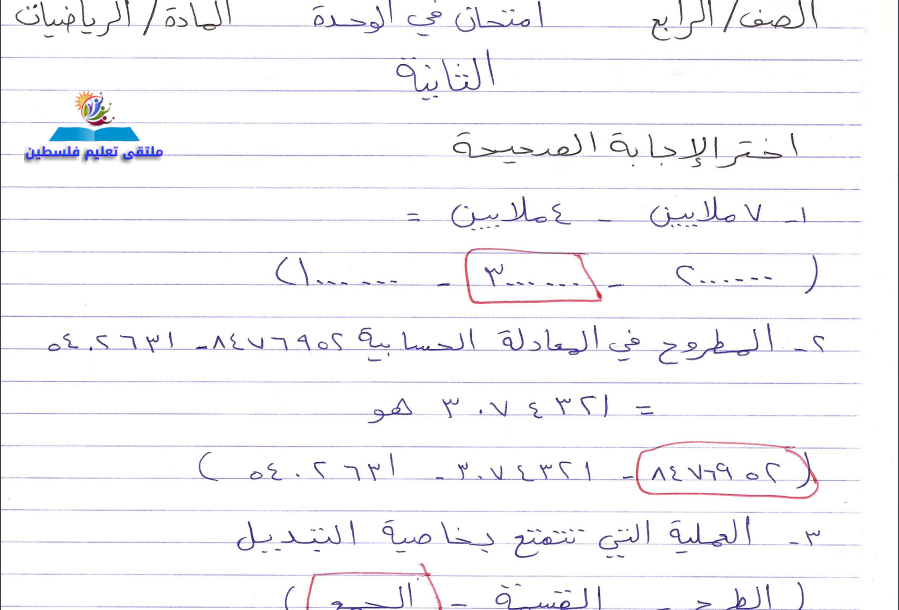 الصف/ الرابع امتحان في الوحدة المادة/ الرياضيات
الثانية
ملتقى تعليم فلسطين
اختر الإجابة الصحيحة
١- ٧ ملايين - ٤ ملايين =
( ٢٠٠٠٠٠٠ - ٣٠٠٠٠٠٠ - ١٠٠٠٠٠٠ )
٢- المطروح في المعادلة الحسابية ٨٤٧٦٩٥٢ - ٥٤٠٢٦٣١
= ٣٠٧٤٣٢١ هو
( ٨٤٧٦٩٥٢ - ٣٠٧٤٣٢١ - ٥٤٠٢٦٣١ )
٣- العملية التي تتمتع بخاصية التبديل
( الطرح - القسمة - الجمع )